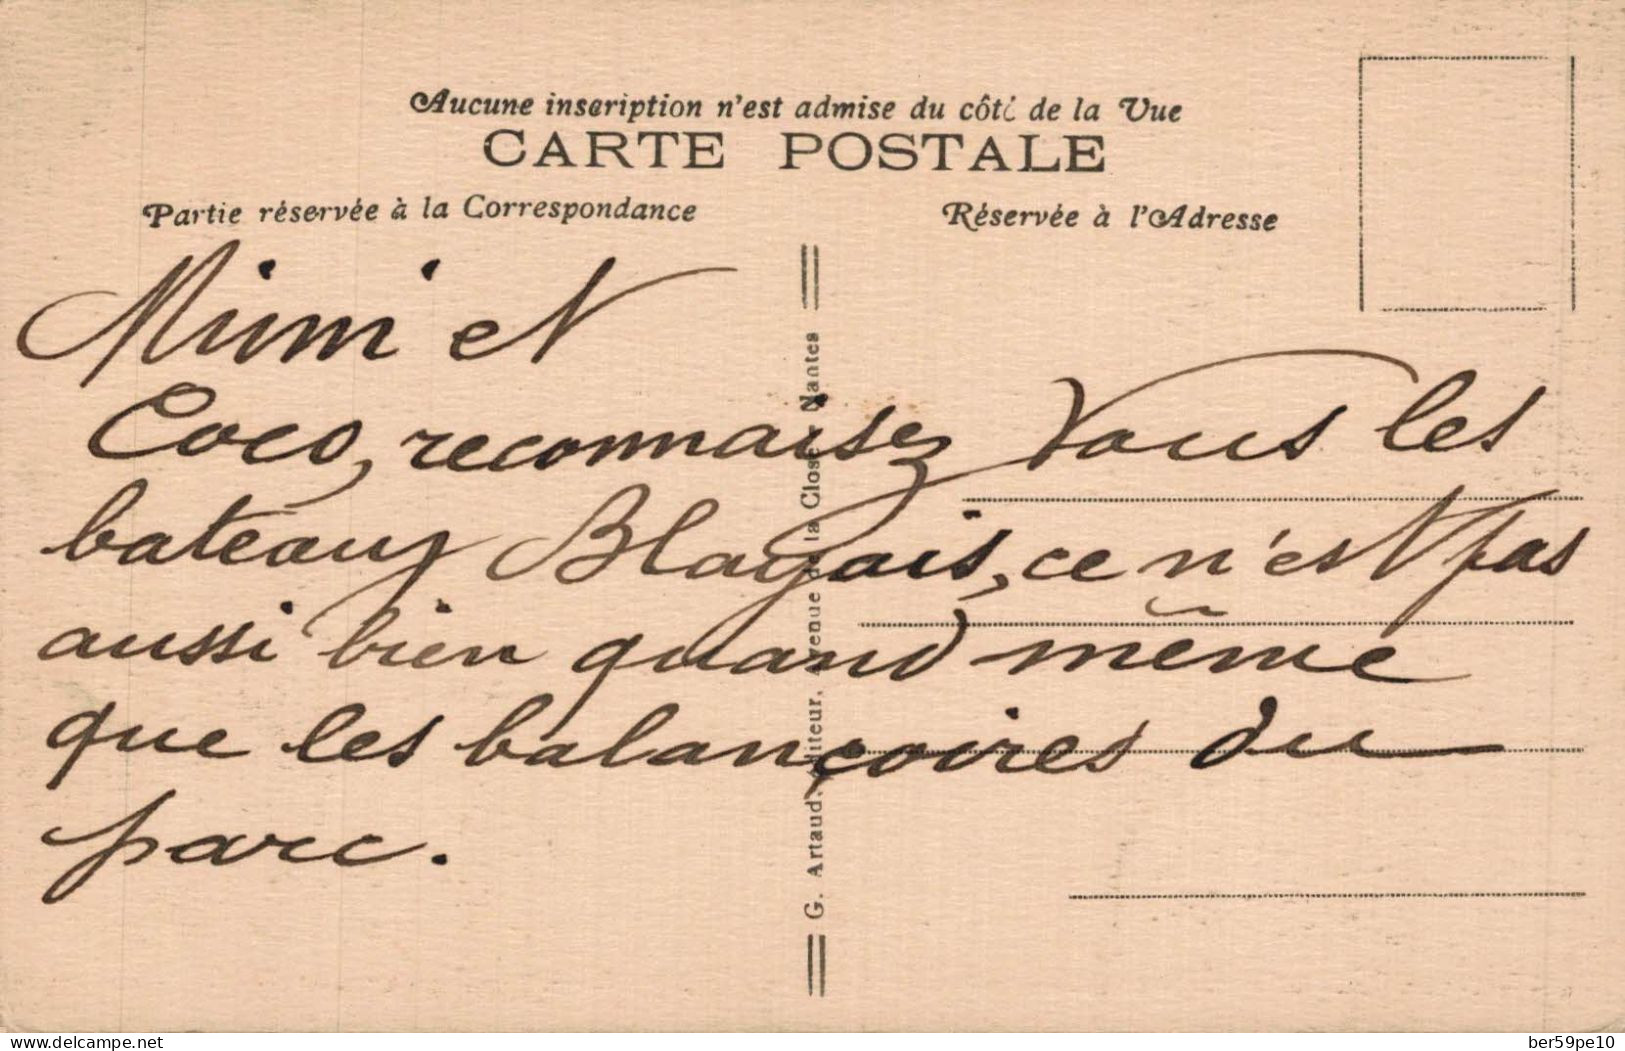 Aucune inscription n'est admise du côté de la Vue
CARTE POSTALE
Partie réservée à la Correspondance
Réservée à l'Adresse
Mimi et
Coco, reconnaisez vous les
bateaux Blagais, ce n'est pas
aussi bien quand même
que les balançoires du
parc.
G. Artaud. Editeur, Avenue de la Close - Nantes
www.delcampe.net
ber59pe10